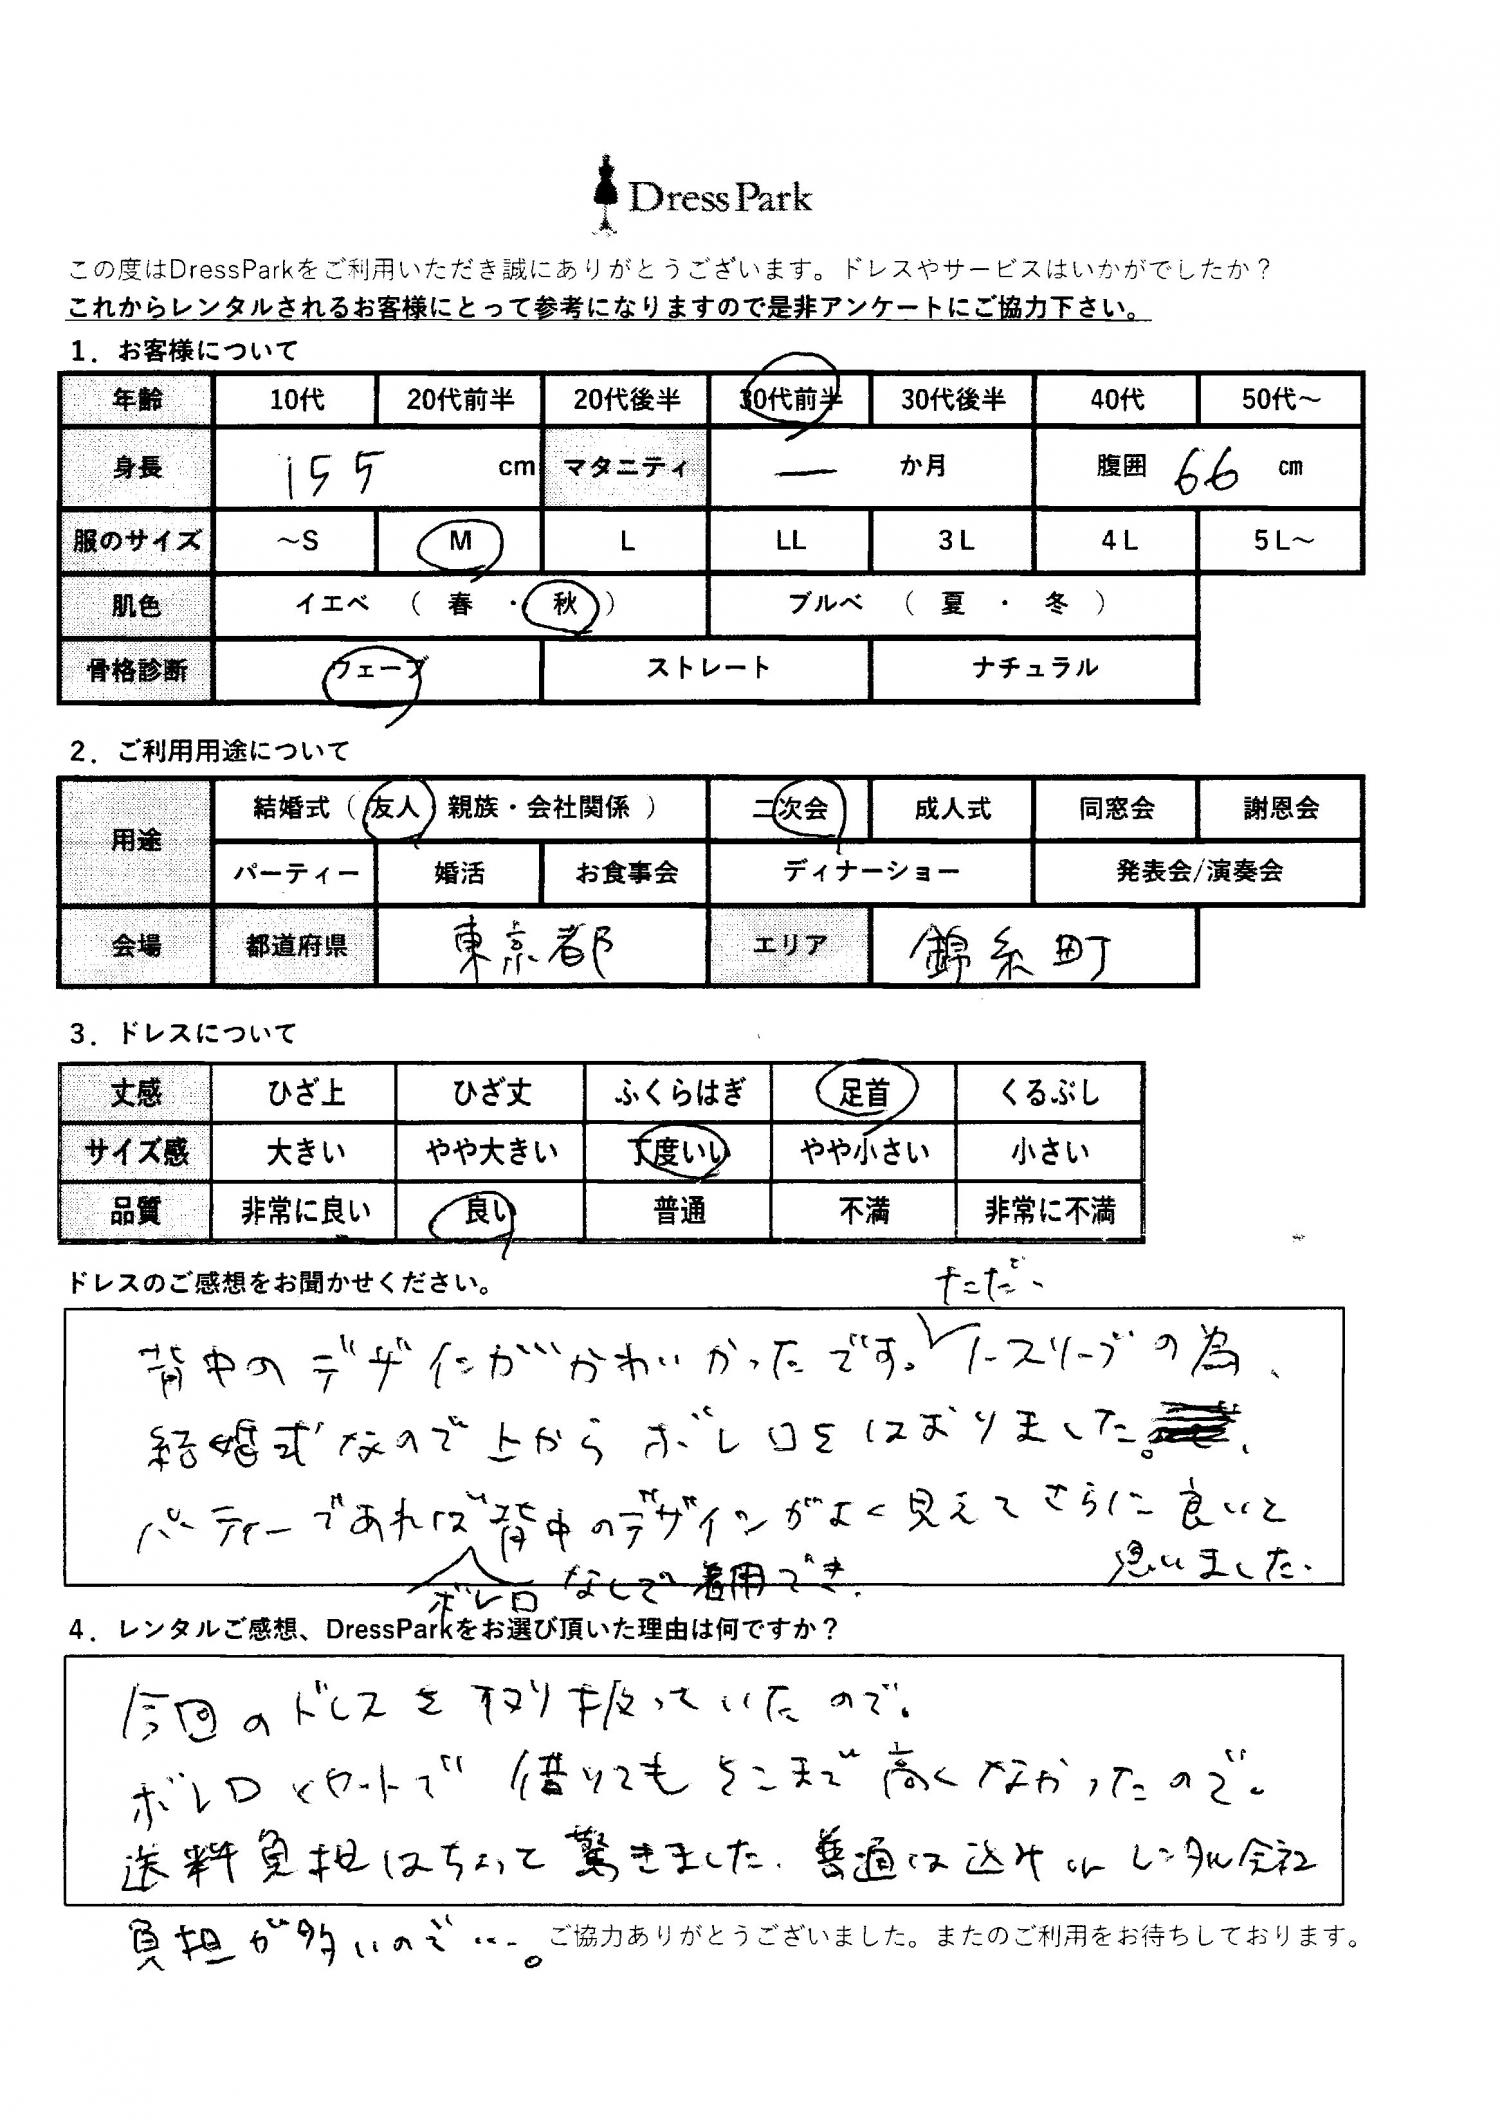 DressPark
この度はDressParkをご利用いただき誠にありがとうございます。ドレスやサービスはいかがでしたか？
これからレンタルされるお客様にとって参考になりますので是非アンケートにご協力下さい。
1．お客様について
年齢 10代 20代前半 20代後半 30代前半 30代後半 40代 50代～
身長 155 cm マタニティ ー か月 腹囲 66 ㎝
服のサイズ ～S M L LL 3L 4L 5L～
肌色 イエベ （ 春 ・ 秋 ） ブルベ （ 夏 ・ 冬 ）
骨格診断 ウェーブ ストレート ナチュラル
2．ご利用用途について
用途 結婚式（ 友人 親族・会社関係 ） 二次会 成人式 同窓会 謝恩会
パーティー 婚活 お食事会 ディナーショー 発表会/演奏会
会場 都道府県 東京都 エリア 錦糸町
3．ドレスについて
丈感 ひざ上 ひざ丈 ふくらはぎ 足首 くるぶし
サイズ感 大きい やや大きい 丁度いい やや小さい 小さい
品質 非常に良い 良い 普通 不満 非常に不満
ドレスのご感想をお聞かせください。
ただ、
背中のデザインがかわいかったです。ノースリーブの為、
結婚式なので上からボレロをはおりました。
パーティーであれば背中のデザインがよく見えてさらに良いと
思いました。
ボレロなしで着用でき、
4．レンタルご感想、DressParkをお選び頂いた理由は何ですか？
今回のドレスを取り扱っていたので。
ボレロとセットで借りてもそこまで高くなかったので。
送料負担はちょっと驚きました。普通は込みorレンタル会社
負担が多いので…。
ご協力ありがとうございました。またのご利用をお待ちしております。